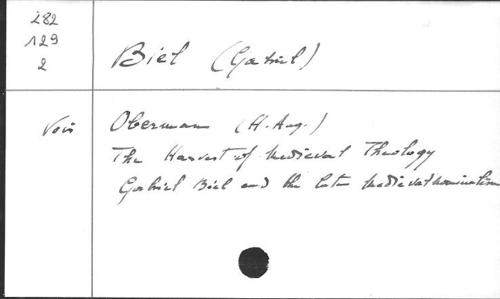 282
129
2
Biel (Gabriel)
Voir Oberman (H. Aug.)
The Harvest of Medieval Theology
Gabriel Biel and the late Medieval nominalism